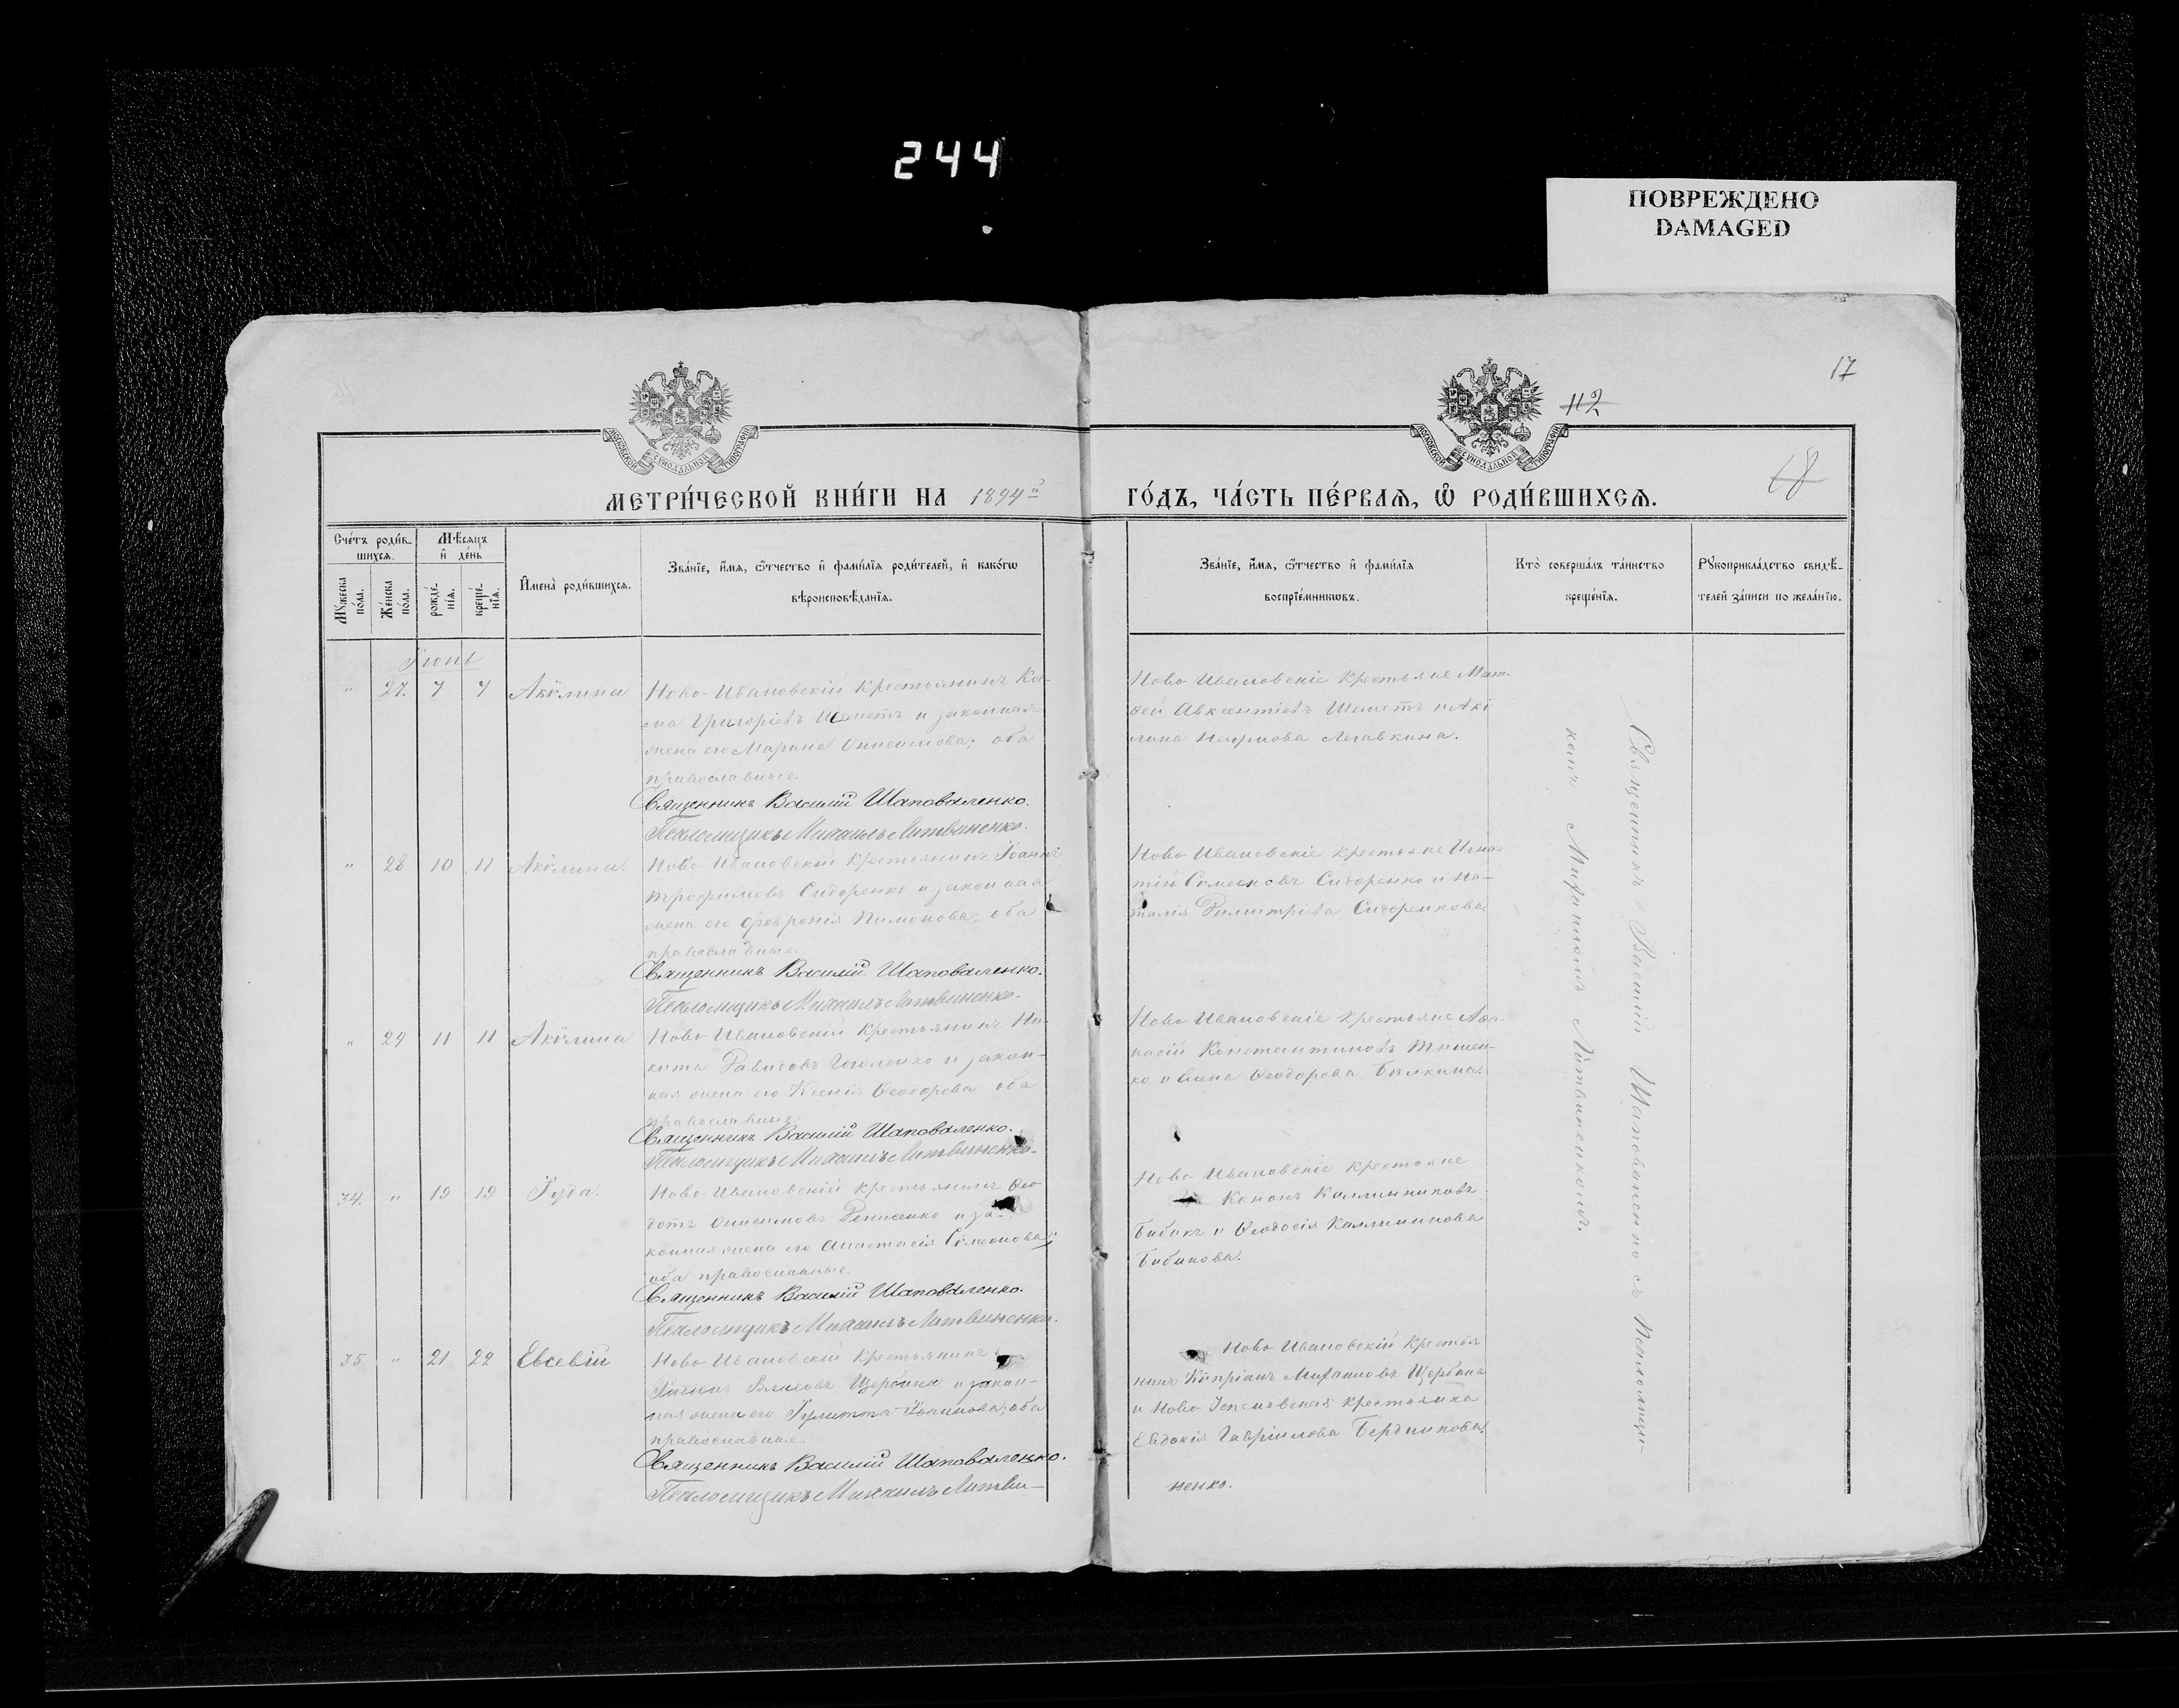 244
ПОВРЕЖДЕНО
DAMAGED
17
112
18
МОСКОВСКОЙ СѴНОДАЛЬНОЙ ТИПОГРАФІИ
МОСКОВСКОЙ СѴНОДАЛЬНОЙ ТИПОГРАФІИ
МЕТРИ́ЧЕСКОЙ КНИ́ГИ НА 1894й ГО́ДЪ, ЧА́СТЬ ПЕ́РВАѦ, Ѽ РОДИ́ВШИХСѦ.
Сче́тъ роди́в-
шихсѧ.
Мѣсѧцъ
и҆ де́нь
Мꙋ́жеска
по́ла.
Же́нска
по́ла.
рожде́-
нїѧ.
креще́-
нїѧ.
И҆мена̀ роди́вшихсѧ.
Зва́нїе, и҆́мѧ, ѻ҆́тчество и҆ фами́лїѧ роди́телей, и҆ како́гѡ
вѣроисповѣ́данїѧ.
Зва́нїе, и҆́мѧ, ѻ҆́тчество и҆ фами́лїѧ
воспрїе́мникѡвъ.
Кто̀ соверша́лъ та́инство
креще́нїѧ.
Рꙋкоприкла́дство свидѣ́-
телей за́писи по жела́нїю.
Іюнь
" 27. 7 7 Акѵлина
Ново-Ивановскій крестьянинъ Кос-
ма Григоріевъ Шеметъ и законная
жена его Марина Онисимова; оба
православные.
Священникъ Василій Шаповаленко.
Псаломщикъ Михаилъ Литвиненко.
Ново-Ивановскіе крестьяне Мат-
ѳей Авксентіевъ Шеметъ и Акі-
лина Наумова Легавкина.
" 28 10 11 Акѵлина.
Ново-Ивановскій крестьянинъ Іоаннъ
Трофимовъ Сидоренко и законная
жена его Февронія Пимонова; оба
православные.
Священникъ Василій Шаповаленко.
Псаломщикъ Михаилъ Литвиненко.
Ново-Ивановскіе крестьяне Игна-
тій Симеоновъ Сидоренко и На-
талія Димитріева Сидоренкова.
" 29 11 11 Акѵлина
Ново-Ивановскій крестьянинъ Ни-
кита Давидовъ Гоголенко и закон-
ная жена его Ксенія Ѳеодорова оба
православные.
Священникъ Василій Шаповаленко.
Псаломщикъ Михаилъ Литвиненко.
Ново-Ивановскіе крестьяне Аѳа-
насій Константиновъ Тишен-
ко и Елена Ѳеодорова Балкина.
34. " 19 19 Іуда.
Ново-Ивановскій крестьянинъ Ѳео-
дотъ Онисимовъ Денисенко и за-
конная жена его Анастасія Симеонова;
оба православные.
Священникъ Василій Шаповаленко.
Псаломщикъ Михаилъ Литвиненко.
Ново-Ивановскіе крестьяне
Кононъ Каллинниковъ
Бибикъ и Ѳеодосія Каллиникова
Бибикова.
35 " 21 22 Евсевій
Ново-Ивановскій крестьянинъ
Власовъ Щербина и закон-
ная жена его Іулитта Іоаннова; оба
православные.
Священникъ Василій Шаповаленко.
Псаломщикъ Михаилъ Литви-
ненко.
Ново-Ивановскій крестья-
нинъ Кипріанъ Михаиловъ Щербина
и Ново крестьянка
Евдокія Гавріилова Бердникова.
Священникъ Василій Шаповаленко съ Псаломщи-
комъ Михаиломъ Литвиненкомъ.